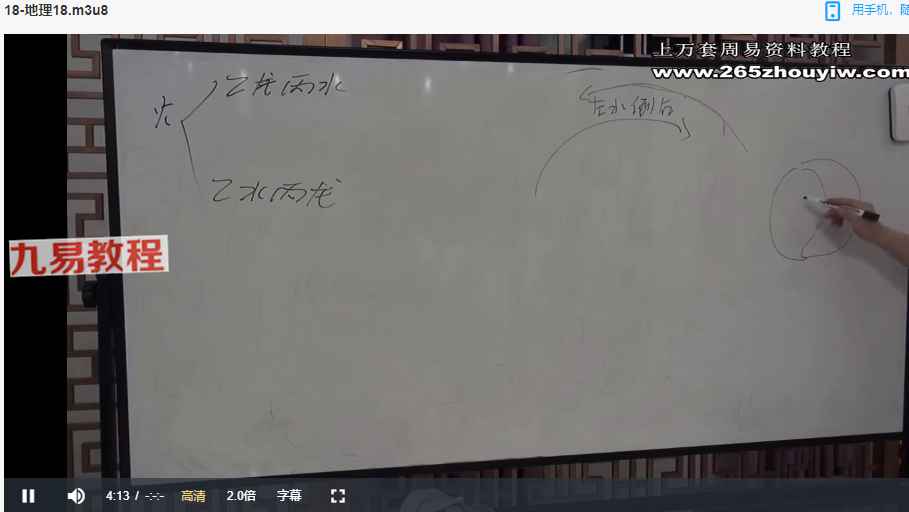 18-地理18.m3u8
用手机、随
上万套周易资料教程
www.265zhouyiw.com
乙龙丙水
左水倒右
火
乙水丙龙
九易教程
4:13 / -:-:-
高清
2.0倍
字幕